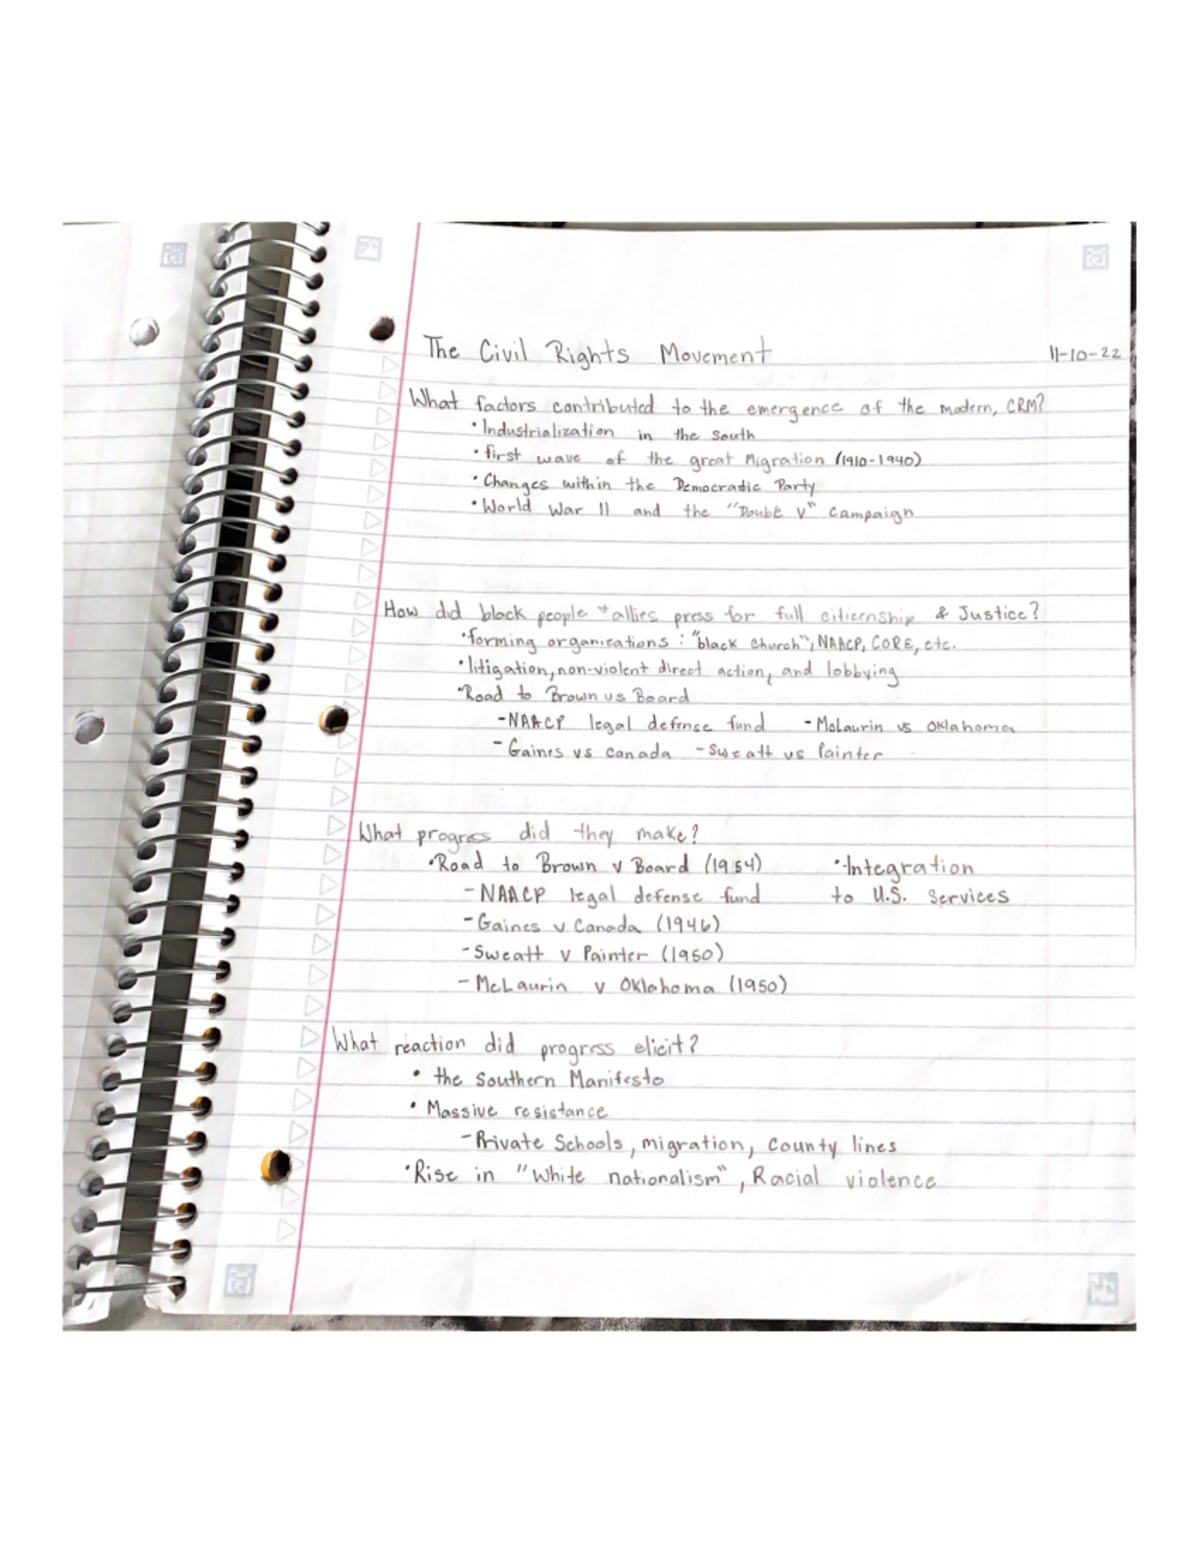 The Civil Rights Movement 11-10-22
What factors contributed to the emergence of the modern, CRM?
• Industrialization in the South
• first wave of the great Migration (1910-1940)
• Changes within the Democratic Party
• World War II and the "Double V" campaign
How did black people + allies press for full citizenship & Justice?
• forming organizations : "black church", NAACP, CORE, etc.
• litigation, non-violent direct action, and lobbying
• Road to Brown vs Board
- NAACP legal defense fund - McLaurin vs Oklahoma
- Gaines vs Canada - Sweatt vs Painter
What progress did they make?
• Road to Brown v Board (1954) • Integration
- NAACP legal defense fund to U.S. Services
- Gaines v Canada (1946)
- Sweatt v Painter (1950)
- McLaurin v Oklahoma (1950)
What reaction did progress elicit?
• the Southern Manifesto
• Massive resistance
- Private Schools, migration, County lines
• Rise in "White nationalism", Racial violence